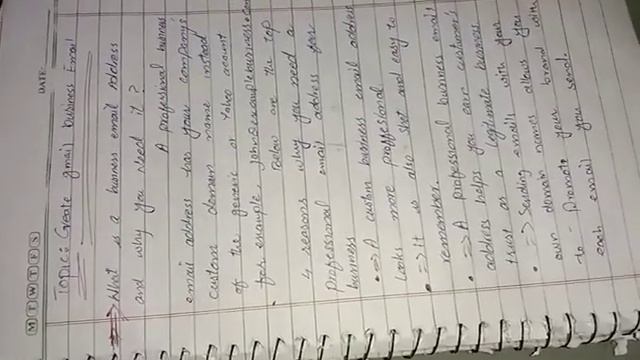 DATE:
M T W T F S
TOPIC: Create gmail business Email
=> What is a business email Address
and why you need it ?
A professional business
email address has your company's
custom domain name instead
of the generic or Yahoo account
for example, john@examplebusiness.com
Below are the top
4 reasons why you need a
professional email address for
business
=> A custom business email address
looks more proffesional
=> It is also shot and easy to
remember.
=> A professional business email
address helps you earn customer's
trust as a legitimate business
=> Sending emails with your
own domain names allows you
to - promote your brand with
each email you send.